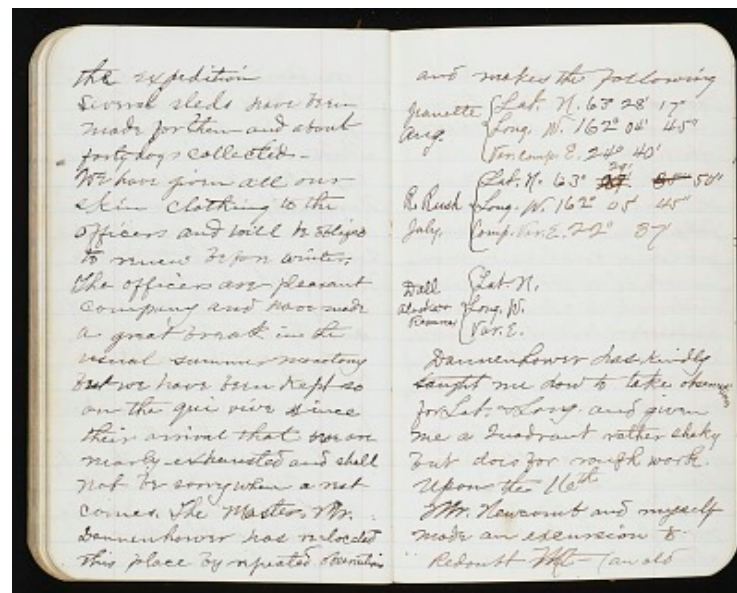 the expedition
Several sleds have been
made for them and about
forty dogs collected -
We have given all our
skin clothing to the
officers and will be obliged
to renew before winter.
The officers are pleasant
company and have made
a great break in the
usual summer monotony
but we have been kept so
on the qui vive since
their arrival that we are
nearly exhausted and shall
not be sorry when a rest
comes. The Master, Mr.
Dannenhower has relocated
this place by repeated observations
and makes the following
Jeannette Lat. N. 63° 28' 17"
Aug. Long. W. 162° 04' 45"
Var. comp. E. 24° 40'
Lat. N. 63° 29' 50"
R. Rush Long. W. 162° 05' 45"
July. Comp. Var. E. 22° 37'
Dall Lat. N.
Alaskan Long. W.
Var. E.
Dannenhower has kindly
taught me how to take observations
for Lat. & Long. and given
me a Quadrant rather shaky
but does for rough work.
Upon the 16th
Mr. Newcomb and myself
made an excursion to
Redoubt Mt - (an old